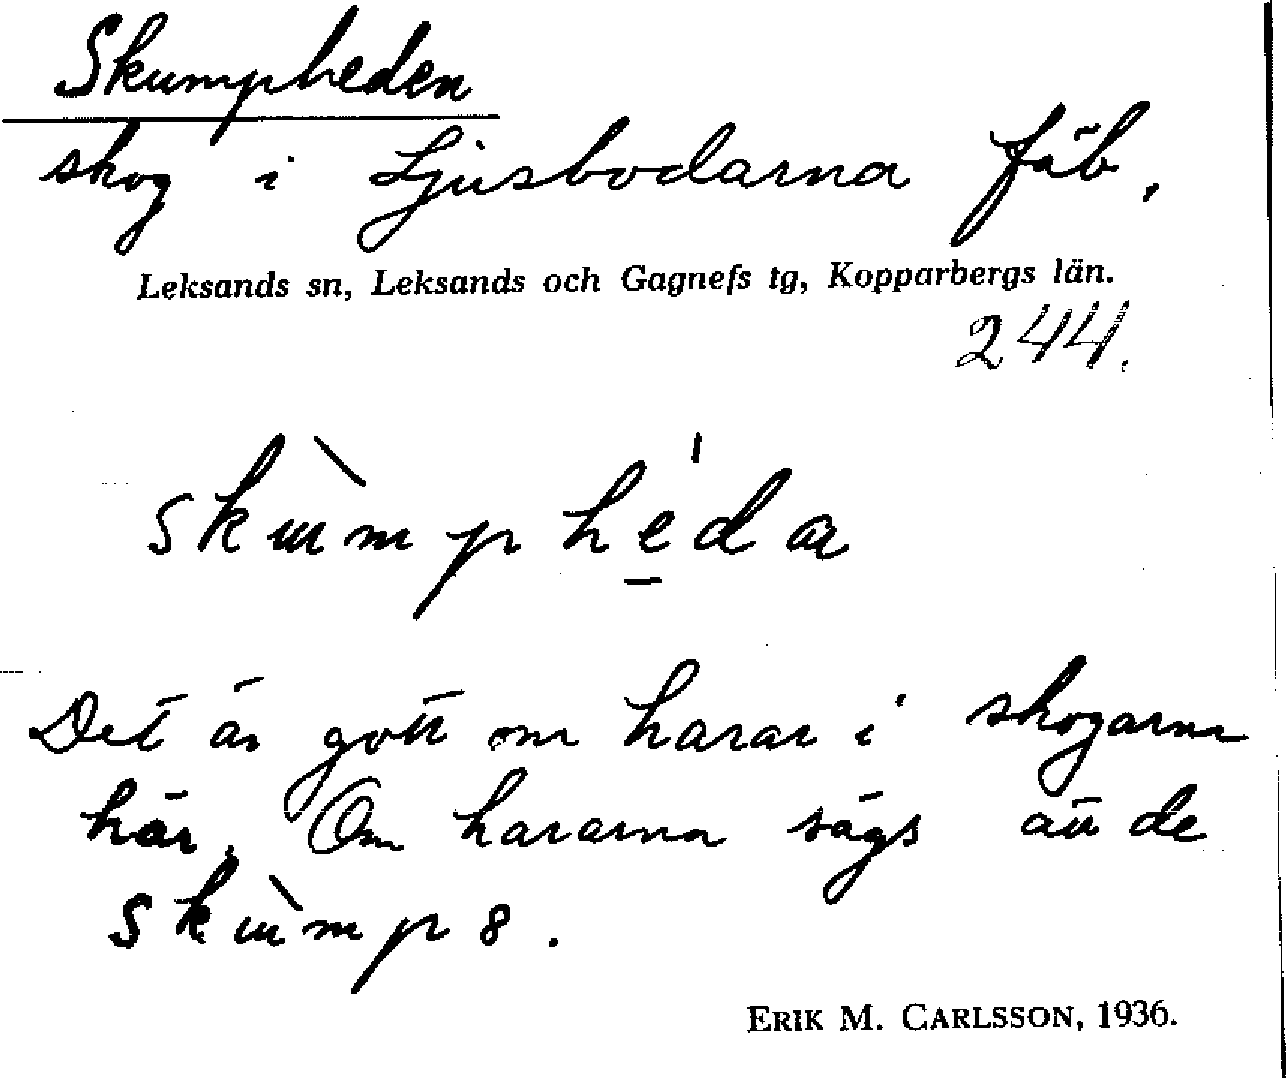 Skumpheden
skog i Ljusbodarna fäb.
Leksands sn, Leksands och Gagnefs tg, Kopparbergs län.
244.
Det är gott om harar i skogarna
här. Om hararna sägs att de
ERIK M. CARLSSON, 1936.